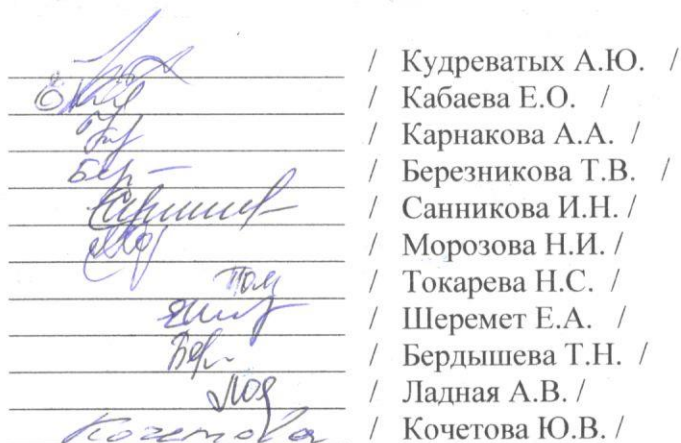 / Кудреватых А.Ю. /
/ Кабаева Е.О. /
/ Карнакова А.А. /
Бер- / Березникова Т.В. /
/ Санникова И.Н. /
/ Морозова Н.И. /
/ Токарева Н.С. /
/ Шеремет Е.А. /
Бер- / Бердышева Т.Н. /
/ Ладная А.В. /
Кочетова / Кочетова Ю.В. /